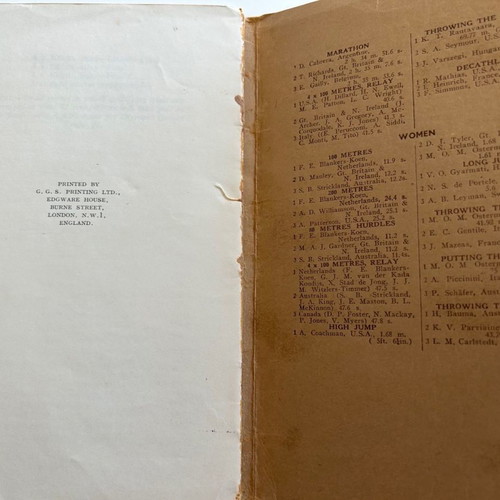 PRINTED BY
G. G. S. PRINTING LTD.,
EDGWARE HOUSE,
BURNE STREET,
LONDON, N.W.1,
ENGLAND.
MARATHON
1 D. Cabrera, Argentine,
2 h. 34 m. 51.6 s.
2 T. Richards, Gt. Britain &
N. Ireland, 2 h. 35 m. 7.6 s.
3 E. Gailly, Belgium,
2 h. 35 m. 33.6 s.
4 x 100 METRES, RELAY
1 U.S.A. (H. Dillard, H. N. Ewell,
M. E. Patton, L. C. Wright)
40.6 s.
2 Gt. Britain & N. Ireland (J.
Archer, J. A. Gregory, A. Mc-
Corquodale, K. J. Jones) 41.3 s.
3 Italy (E. Perucconi, A. Siddi,
C. Monti, M. Tito) 41.5 s.
WOMEN
100 METRES
1 F. E. Blankers-Koen,
Netherlands, 11.9 s.
2 D. Manley, Gt. Britain &
N. Ireland, 12.2 s.
3 S. B. Strickland, Australia, 12.2s.
200 METRES
1 F. E. Blankers-Koen,
Netherlands, 24.4 s.
2 A. D. Williamson, Gt. Britain &
N. Ireland, 25.1 s.
3 A. Patterson, U.S.A., 25.2 s.
80 METRES HURDLES
1 F. E. Blankers-Koen,
Netherlands, 11.2 s.
2 M. A. J. Gardner, Gt. Britain &
N. Ireland, 11.2 s.
3 S. B. Strickland, Australia, 11.4s.
4 x 100 METRES, RELAY
1 Netherlands (F. E. Blankers-
Koen, G. J. M. van der Kade
Koudijs, X. Stad de Jong, J. J.
M. Witziers-Timmer) 47.5 s.
2 Australia (S. B. Strickland,
J. A. King, J. E. Maston, B. L.
McKinnon) 47.6 s.
3 Canada (D. P. Foster, N. Mackay,
P. Jones, V. Myers) 47.8 s.
HIGH JUMP
1 A. Coachman, U.S.A., 1.68 m.
( 5ft. 6⅛in.)
THROWING THE
1 K. T. Rautavaara,
69.77 m.
2 S. A. Seymour, U.S.
3 J. Varszegi, Hungary
DECATHL
1 R. Mathias, U.S.A.
2 I. Heinrich, Fran
3 F. Simmons, U.S.A.
2 D. J. Tyler, Gt.
N. Ireland, 1.68
3 M. O. M. Osterm
1.61
LONG J
1 V. O. Gyarmati, H
2 N. S. de Portela
3 A. B. Leyman, S
THROWING T
1 M. O. M. Osterm
41.92
2 E. C. Gentile, It
3 J. Mazeas, Franc
PUTTING TH
1 M. O. M. Osterm
2 A. Piccinini, It
3 P. Schäfer, Aust
THROWING
1 H. Bauma, Aust
2 K. V. Parviain
43.7
3 L. M. Carlstedt,